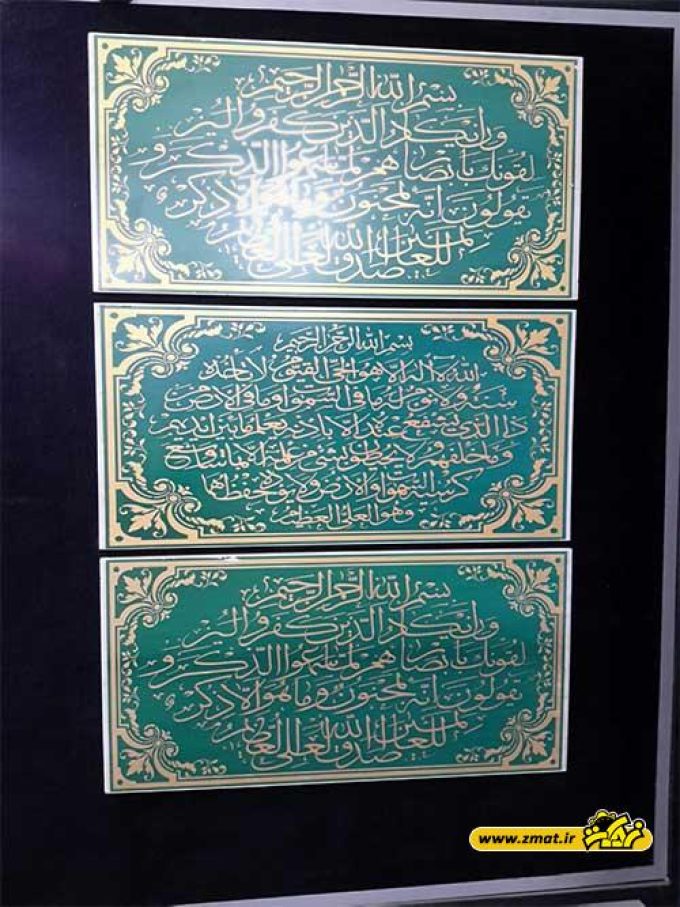 بسم الله الرحمن الرحیم
و ان یکاد الذین کفروا لیز
لقونك بابصارهم لما سمعوا الذکر و
یقولون انه لمجنون و ما هو الا ذکر
للعالمین
صدق الله العلی العظیم
بسم الله الرحمن الرحیم
الله لا اله الا هو الحی القیوم لا تاخذه
سنة و لا نوم له ما فی السموات و ما فی الارض
ذا الذی یشفع عنده الا باذنه یعلم ما بین ایدیهم
و ما خلفهم و لا یحیطون بشیء من علمه الا بما شاء وسع
کرسیه السموات و الارض و لا یوده حفظهما
و هو العلی العظیم
بسم الله الرحمن الرحیم
و ان یکاد الذین کفروا لیز
لقونك بابصارهم لما سمعوا الذکر و
یقولون انه لمجنون و ما هو الا ذکر
للعالمین
صدق الله العلی العظیم
www.zmat.ir